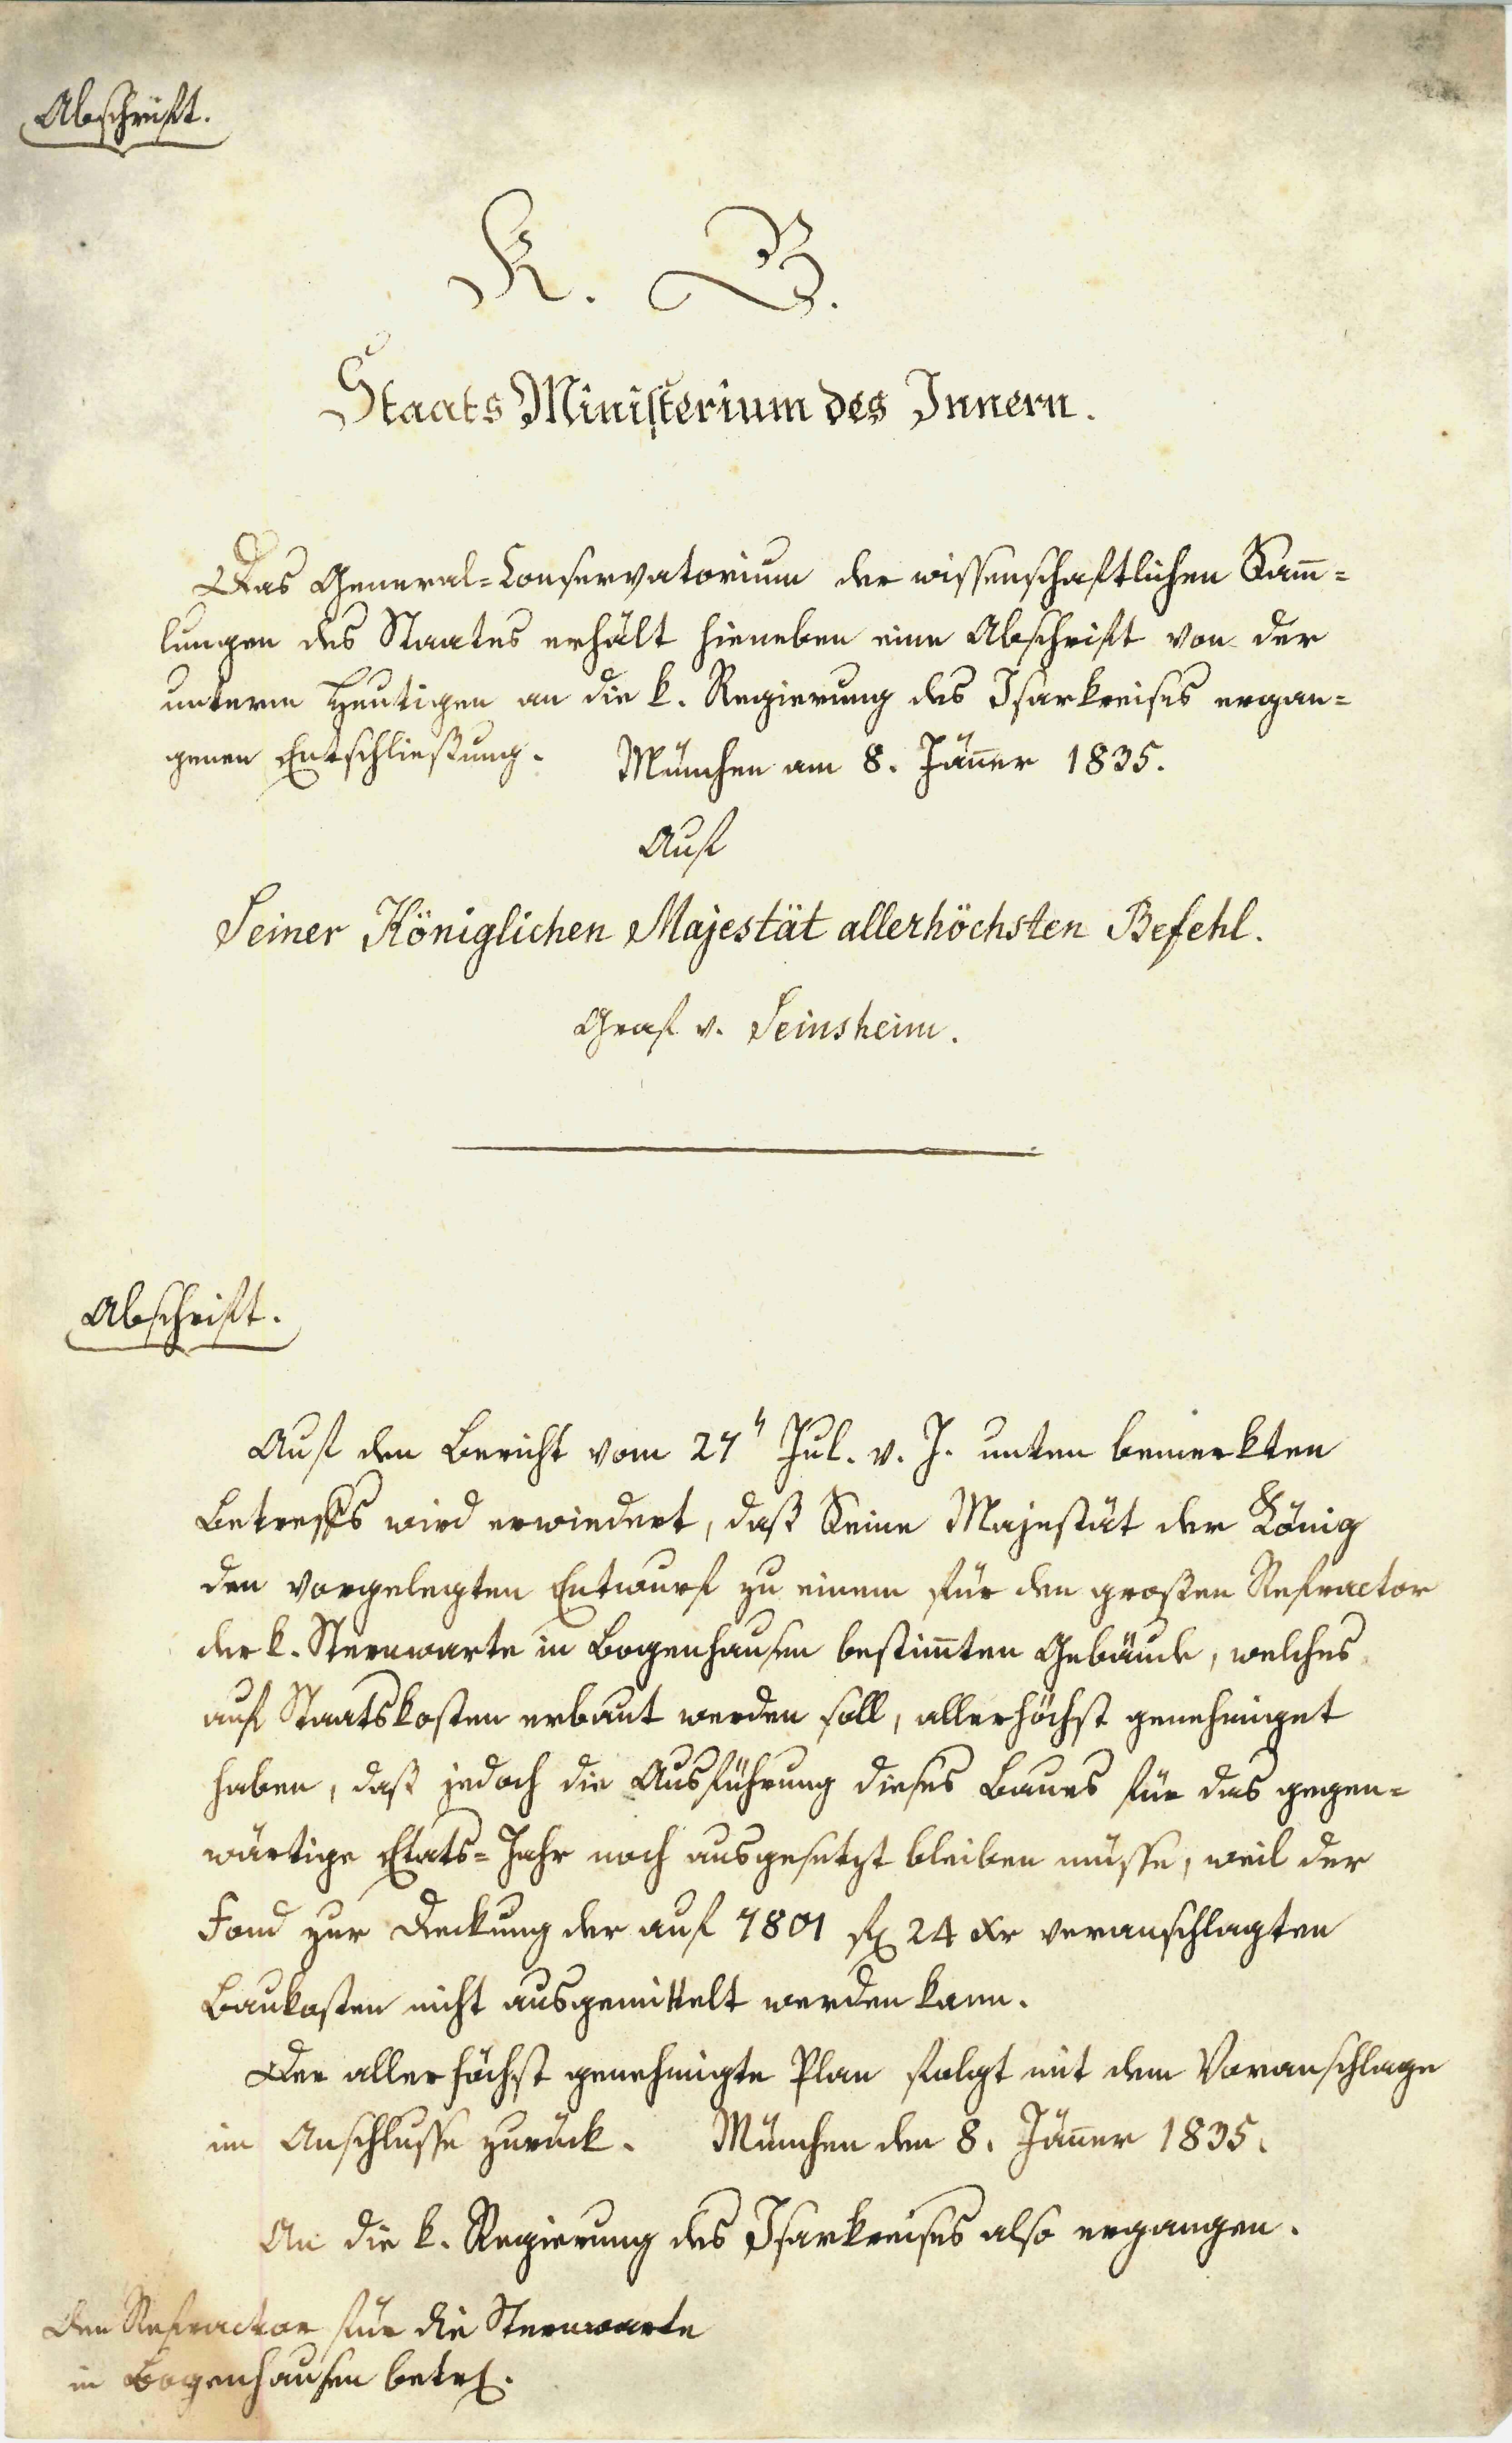 Abschrift.
K. B.
Staats Ministerium des Innern.
Das General=Conservatorium der wissenschaftlichen Sam̅=
lungen des Staates erhält hieneben eine Abschrift von der
unterm Heutigen an die k. Regierung des Isarkreises ergan=
genen Entschließung. München am 8. Jän̅er 1835.
Auf
Seiner Königlichen Majestät allerhöchsten Befehl.
Graf v. Seinsheim.
Abschrift.
Auf den Bericht vom 27" Jul. v. J. unten bemerkten
Betreffs wird erwiedert, daß Seine Majestät der König
den vorgelegten Entwurf zu einem für den großen Refractor
der k. Sternwarte in Bogenhausen bestim̅ten Gebäude, welches
auf Staatskosten erbaut werden soll, allerhöchst genehmiget
haben, daß jedoch die Ausführung dieses Baues für das gegen=
wärtige Etats=Jahr noch ausgesetzt bleiben müsse, weil der
Fond zur Deckung der auf 7801 fl 24 xr veranschlagten
Baukosten nicht ausgemittelt werden kann.
Der allerhöchst genehmigte Plan folgt mit dem Voranschlage
im Anschlusse zurück. München den 8. Jän̅er 1835.
An die k. Regierung des Isarkreises also ergangen.
Den Refractor für die Sternwarte
in Bogenhausen betrf.